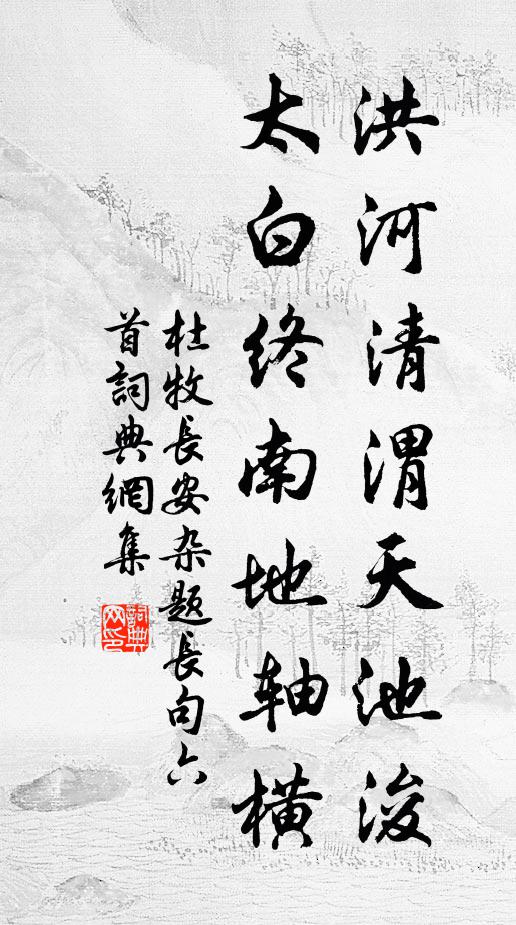 洪河清渭天池浚
太白终南地轴横
杜牧長安杂題長句六
首詞典網集
詞典
网印